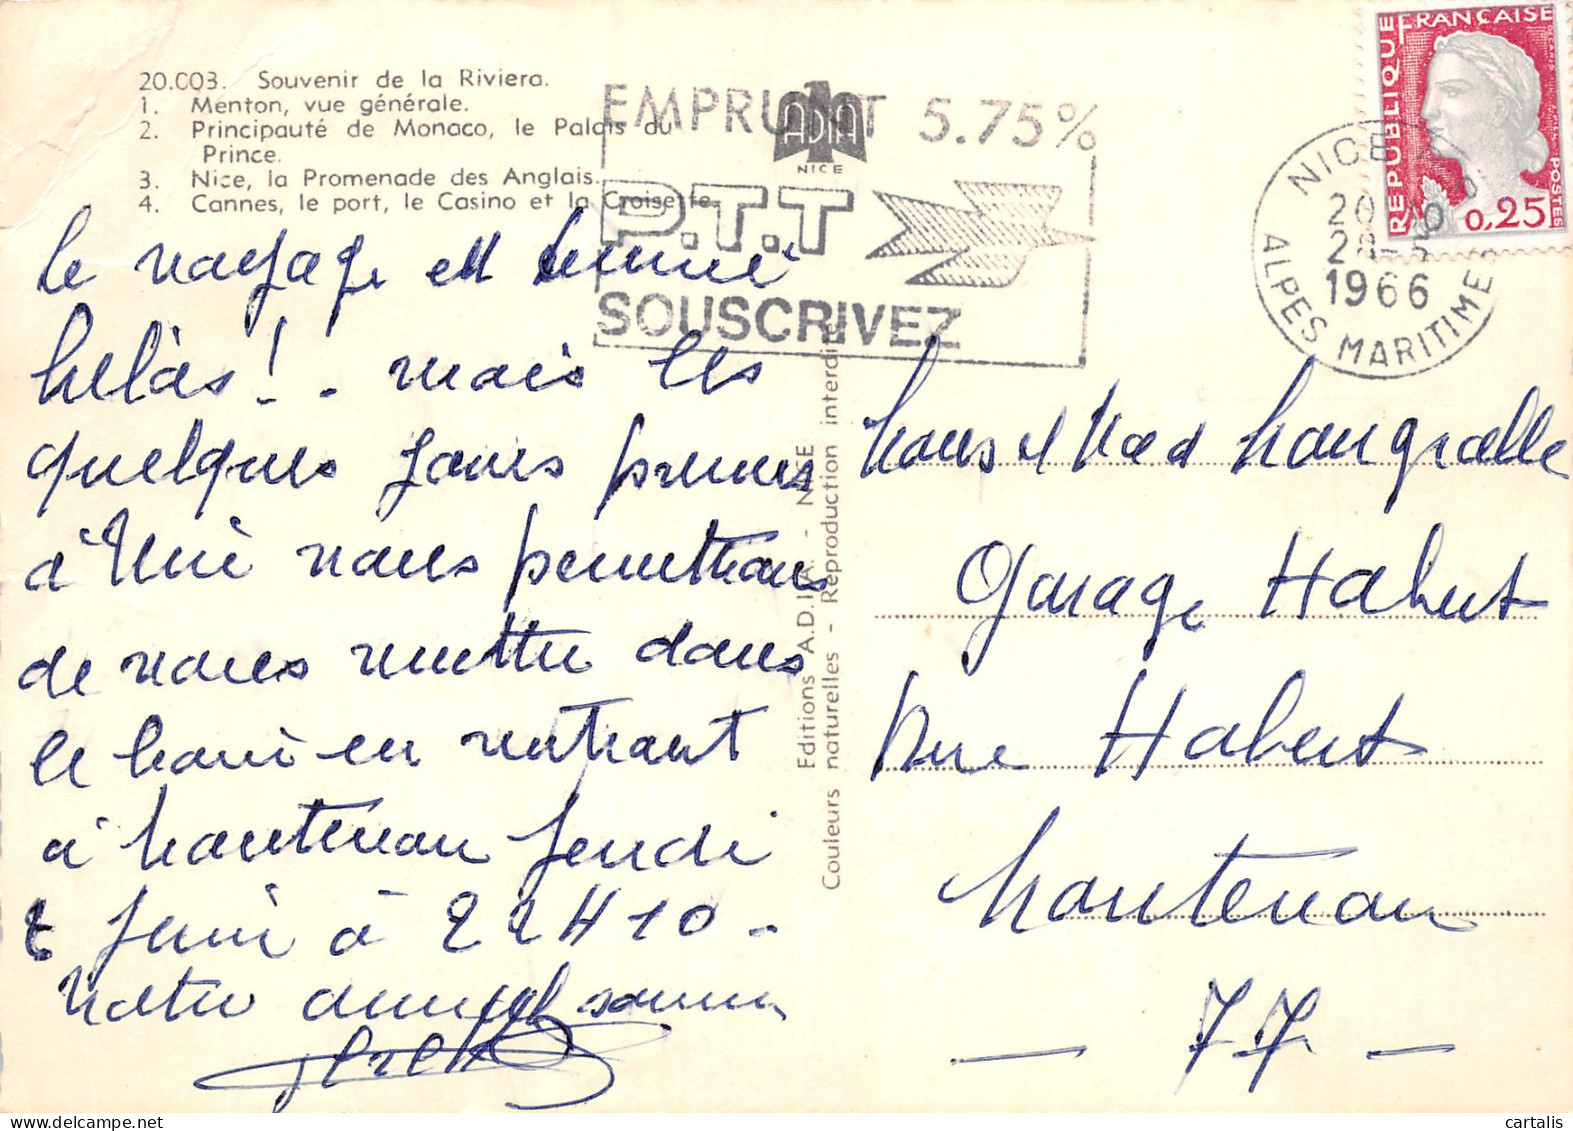 20.003. Souvenir de la Riviera.
1. Menton, vue générale.
2. Principauté de Monaco, le Palais du
Prince.
3. Nice, la Promenade des Anglais.
4. Cannes, le port, le Casino et la Croisette.
EMPRUNT 5.75%
P.T.T
SOUSCRIVEZ
ADIA
NICE
REPUBLIQUE FRANÇAISE
POSTES
0,25
NICE
20 10
1966
ALPES MARITIMES
le voyage est terminé
hélas ! - mais les
quelques jours prévus
à Nice nous permettrons
de nous mettre dans
le bain en rentrant
à Montereau Jeudi
2 Juin à 22H10 -
Notre
Editions A.D.I.A. - NICE
Couleurs naturelles - Reproduction interdite
Garage Habert
Rue Habert
Montereau
- 77 -
cartalis.com